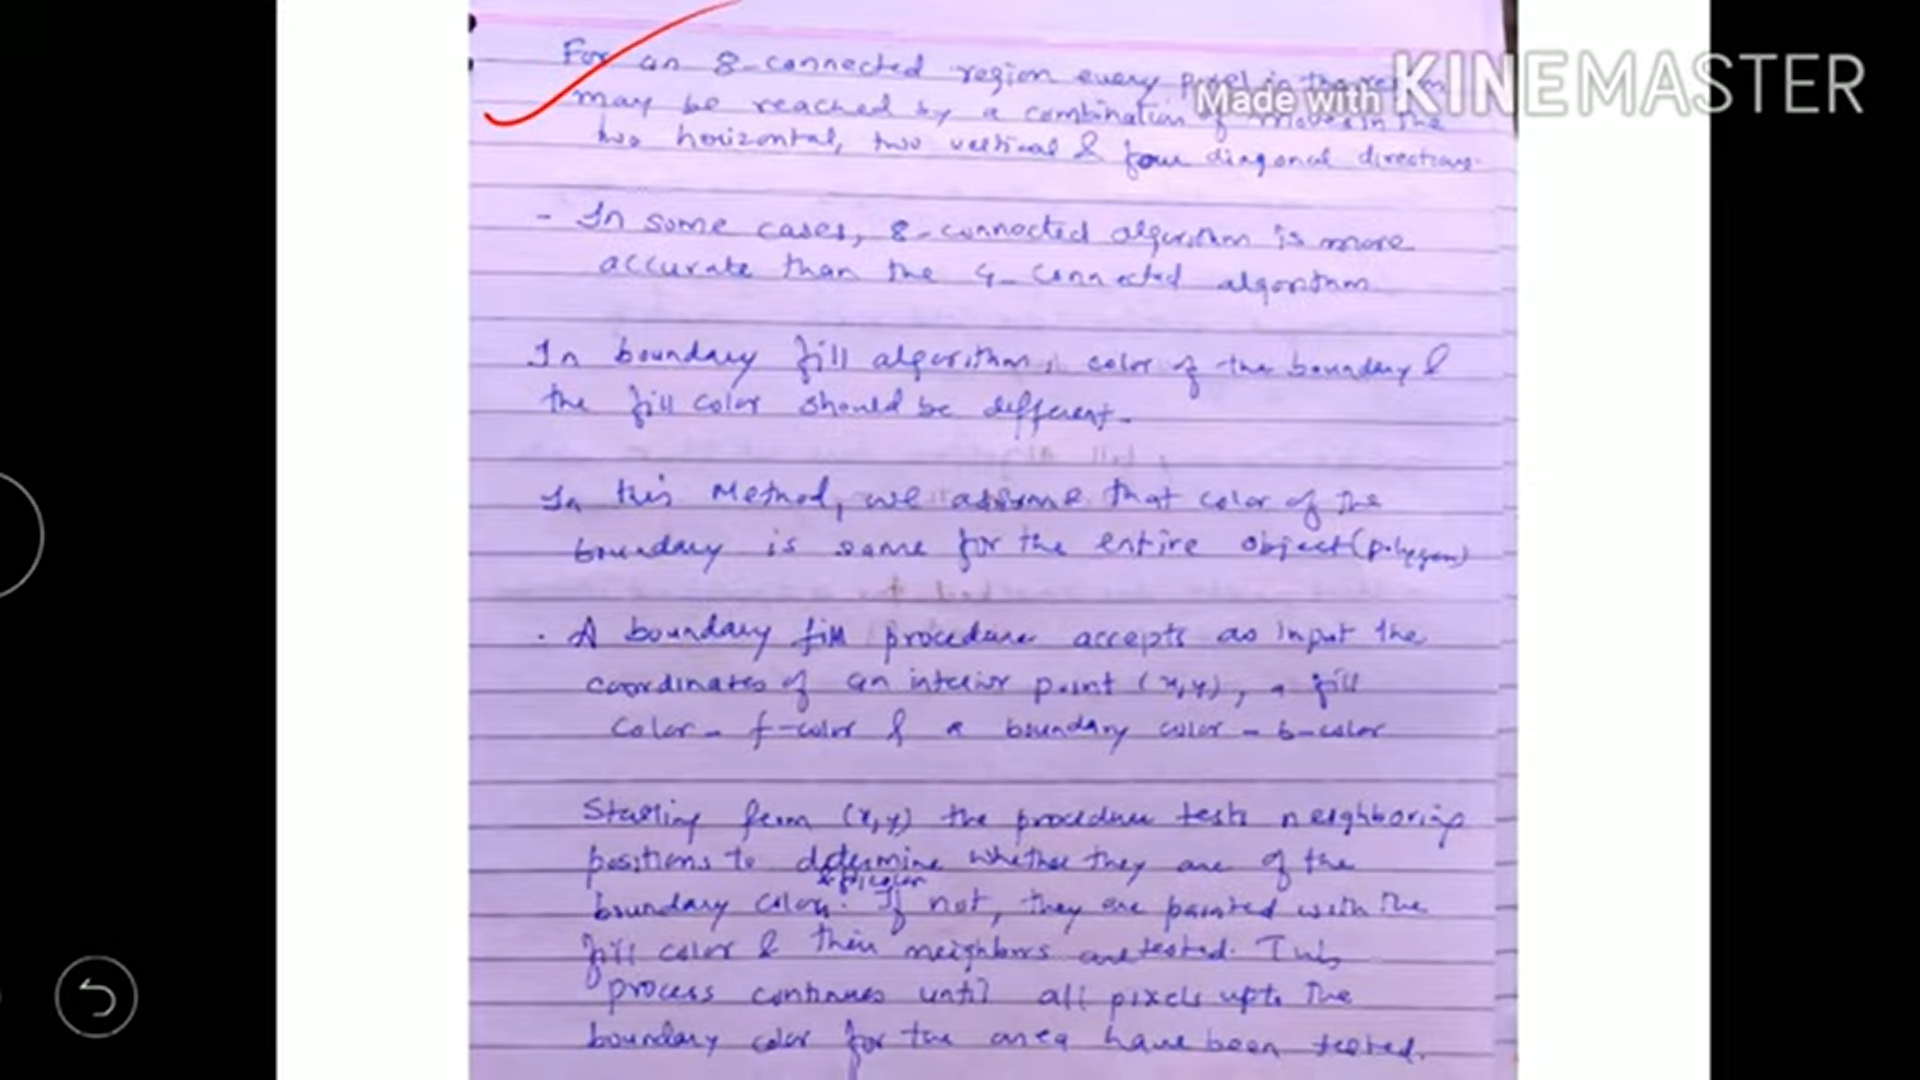 For an 8-connected region every pixel in the region
Made with KINEMASTER
may be reached by a combination of moves in the
two horizontal, two vertical & four diagonal directions.
- In some cases, 8-connected algorithm is more
accurate than the 4-connected algorithm
In boundary fill algorithm, color of the boundary &
the fill color should be different.
In this Method, we assume that color of the
boundary is same for the entire object (polygon)
. A boundary fill procedure accepts as input the
coordinates of an interior point (x,y), a fill
color - f-color & a boundary color - b-color
Starting from (x,y) the procedure tests neighboring
positions to determine whether they are of the
& fill color
boundary color. If not, they are painted with the
fill color & their neighbors are tested. This
process continues until all pixels upto the
boundary color for the area have been tested.